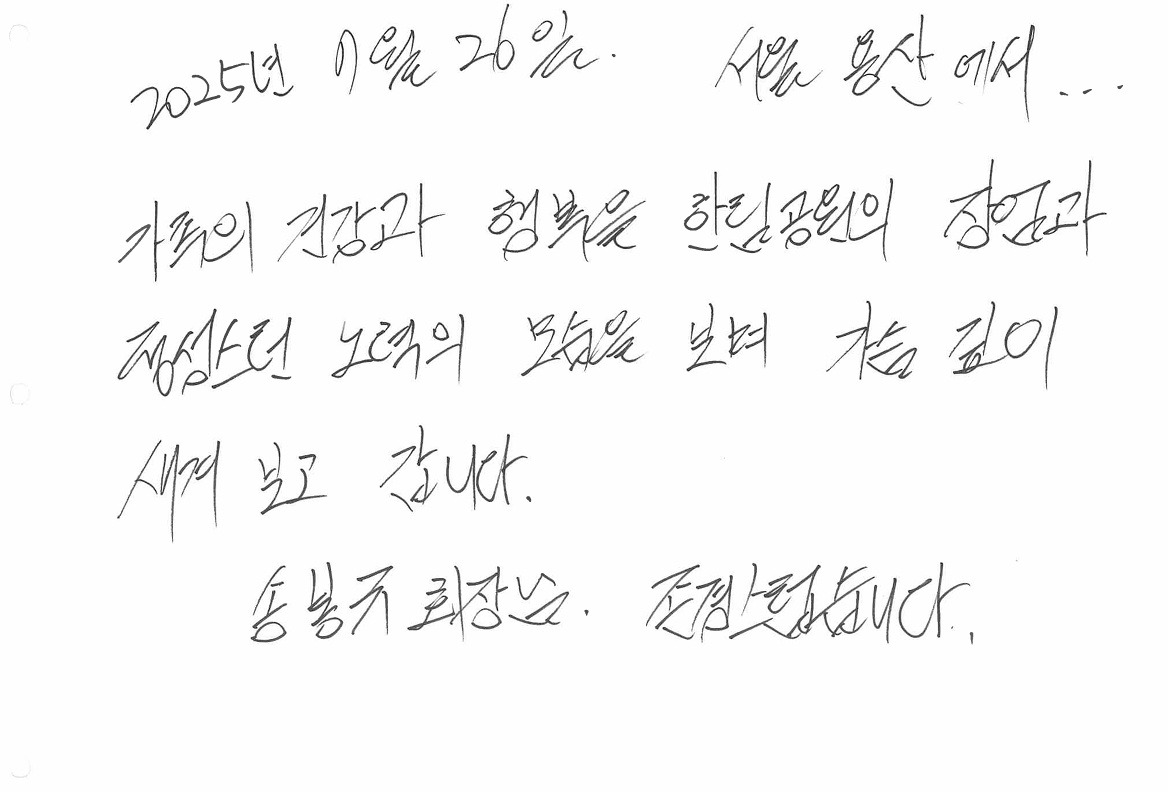 2025년 11월 26일. 서울 용산에서...
가족의 건강과 행복을 한림공원의 장엄과
정성스런 노력의 모습을 보며 가슴 깊이
새겨 보고 갑니다.
송봉규 회장님. 존경스럽습니다.